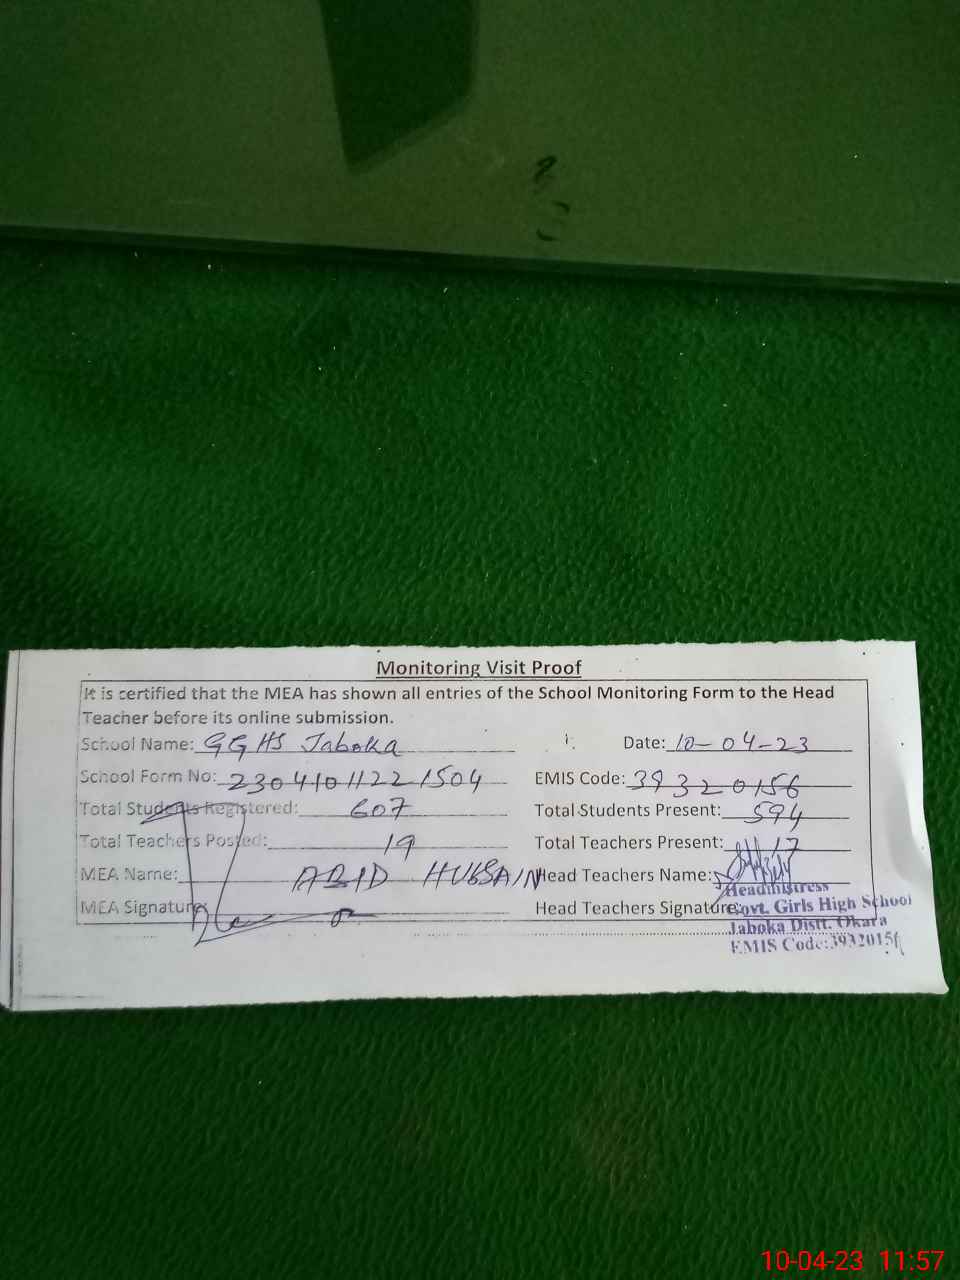 Monitoring Visit Proof
It is certified that the MEA has shown all entries of the School Monitoring Form to the Head
Teacher before its online submission.
School Name: GGHS Jaboka Date: 10-04-23
School Form No: 2304101122 1504 EMIS Code: 39320156
Total Students Registered: 607 Total Students Present: 594
Total Teachers Posted: 19 Total Teachers Present: 17
MEA Name: ABID HUSSAIN Head Teachers Name:
MEA Signature Head Teachers Signature:
Headmistress
Govt. Girls High School
Jaboka Distt. Okara
EMIS Code:3932015
10-04-23 11:57